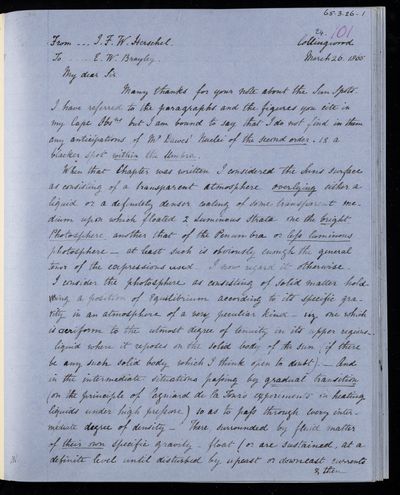 65-3-26-1
24. 101
From --- J. F. W. Herschel. Collingwood
To ---- E. W. Brayley. March 26. 1865
My dear Sir
Many thanks for your note about the Sun Spots.
I have referred to the paragraphs and the figures you cite in
my Cape Obsns but I am bound to say that I do not find in them
any anticipations of Mr Dawes' Nuclei of the second order. is a
blacker spot within the Umbra.
When that Chapter was written I considered the Suns surface
as consisting of a transparent atmosphere overlying either a
liquid or a definitely denser coating of some transparent me-
dium upon which floated 2 Luminous strata one the bright
Photosphere another that of the Penumbra or less luminous
photosphere — at least such is obviously enough the general
tenor of the expressions used I now regard it otherwise.
I consider the photosphere as consisting of solid matter hold-
ing a position of Equilibrium according to its specific gra-
vity in an atmosphere of a very peculiar kind — viz one which
is aeriform to the utmost degree of tenuity in its upper regions —
liquid where it reposes on the solid body of the sun (if there
be any such solid body which I think open to doubt) — And
in the intermediate situations passing by gradual transition
(on the principle of Cagniard de la Tour's experiments in heating
liquids under high pressure) so as to pass through every inter-
mediate degree of density — There surrounded by fluid matter
of their own specific gravity float (or are sustained, at a
definite level until disturbed by upcast or downcast currents
& then